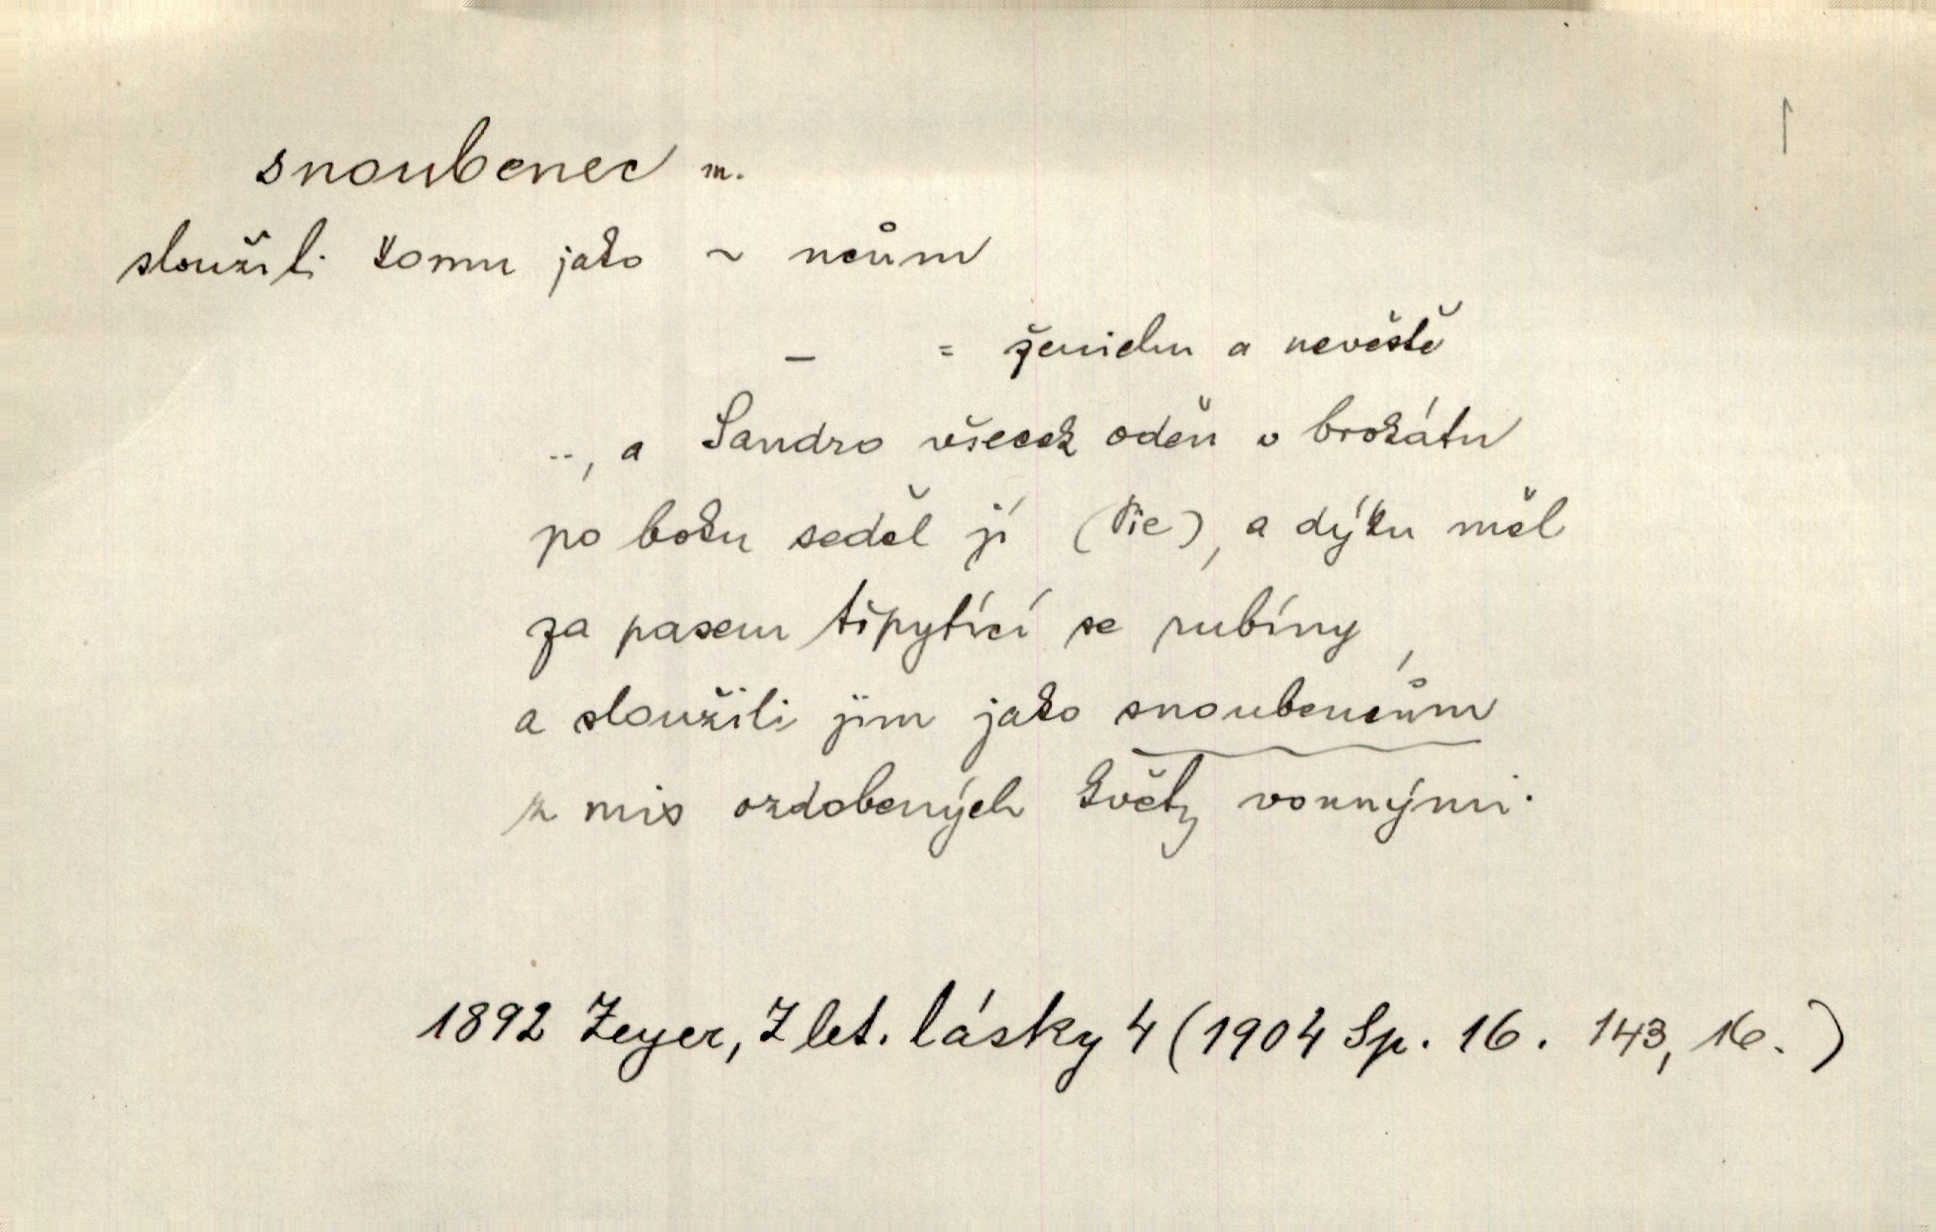 1
snoubenec m.
sloužili komu jako ~ ncům
– = ženichu a nevěstě
.., a Sandro všecek oděn v brokátu
po boku seděl jí (Pie), a dýku měl
za pasem třpytící se rubíny,
a sloužili jim jako snoubencům
z mis ozdobených květy vonnými.
1892 Zeyer, Z let. lásky 4 (1904 Sp. 16. 143, 16.)